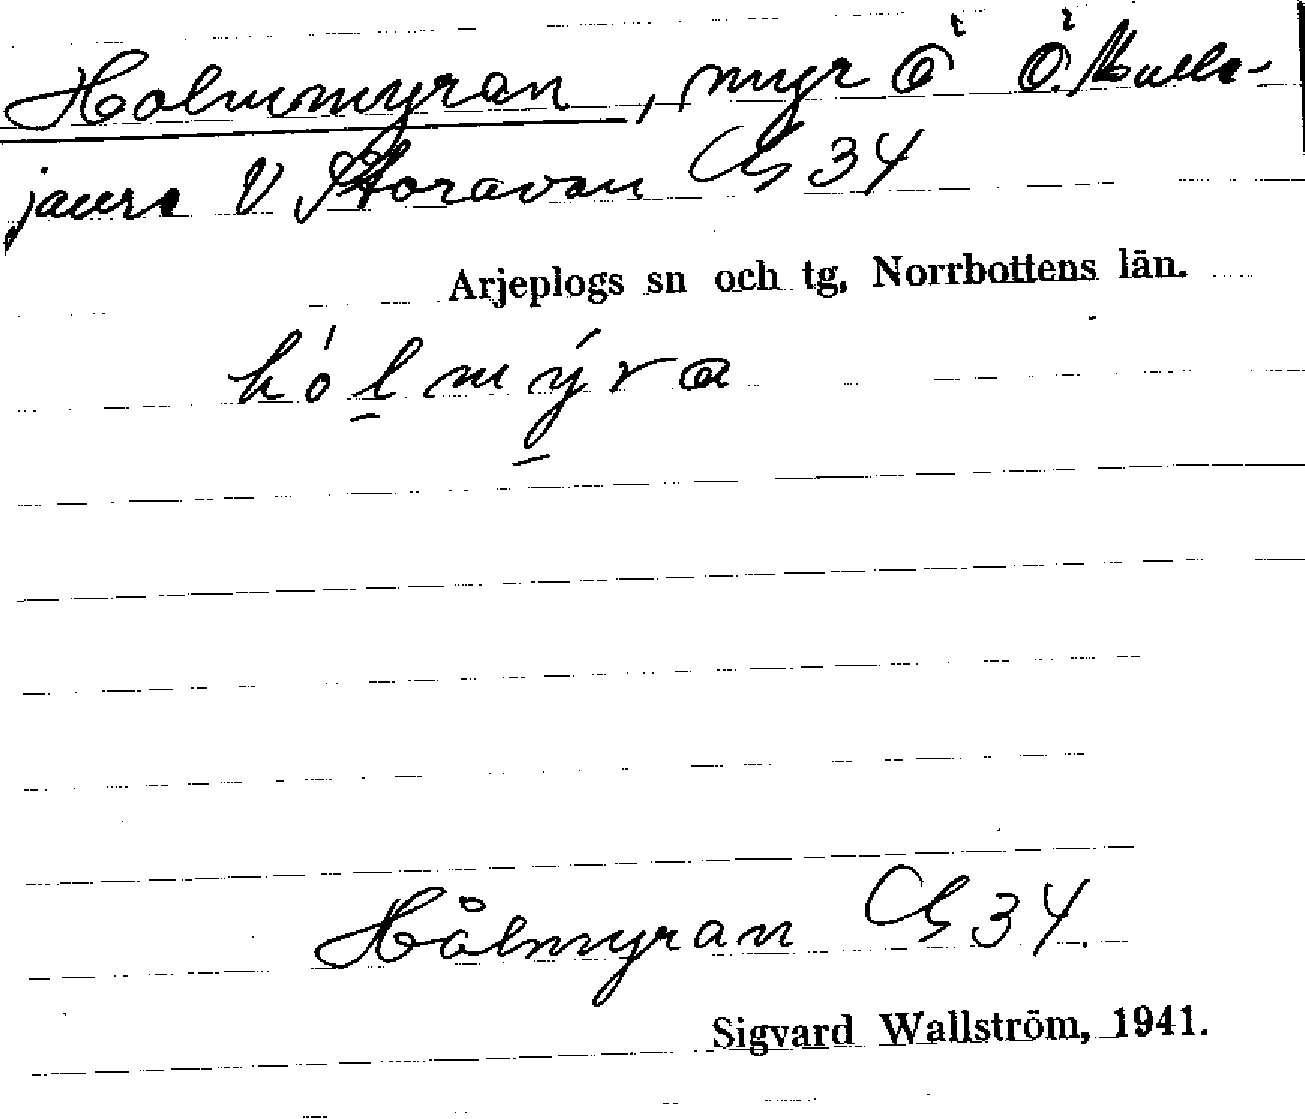 Holmmyran, myr Ö Ö. Kulla-
jaure V Storavan Cg 34
Arjeplogs sn och tg, Norrbottens län.
hólmýra
Hålmyran Cg 34.
Sigvard Wallström, 1941.